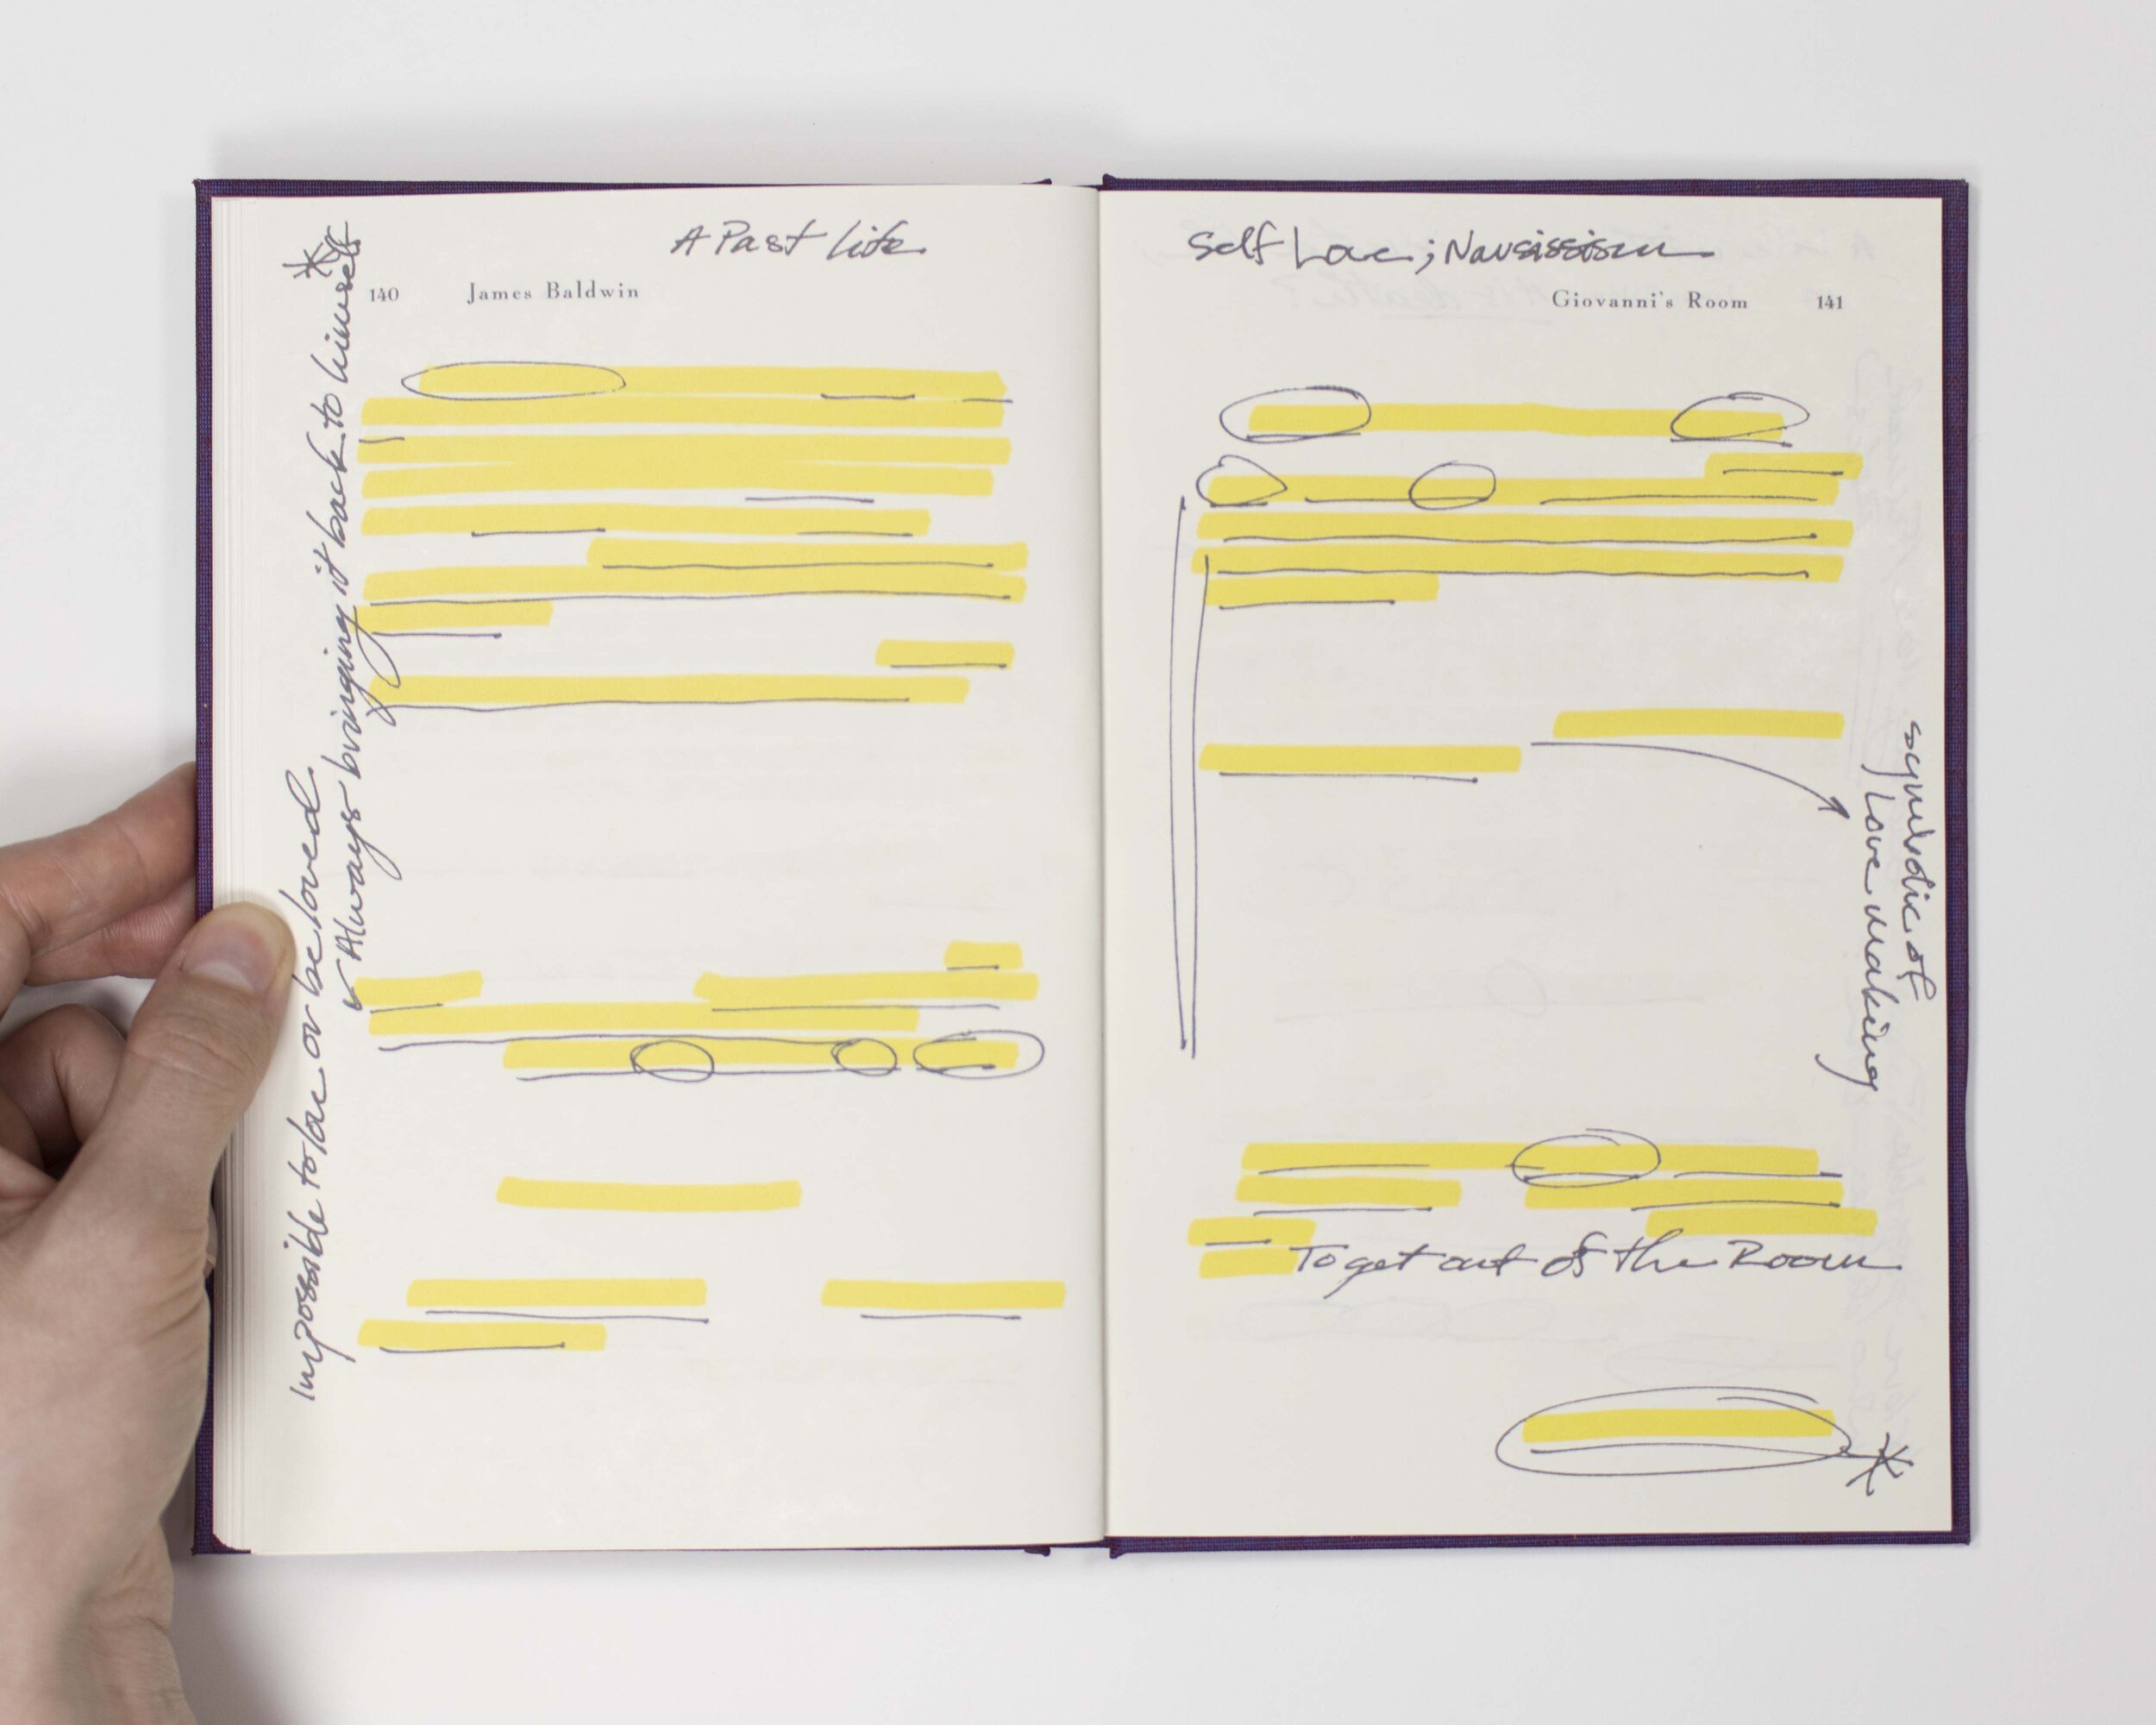 A Past Life
140 James Baldwin
Always bringing it back to himself
Impossible to love or be loved.
Self Love; Narsissism
Giovanni's Room 141
symbolic of
Love making
To get out of the Room